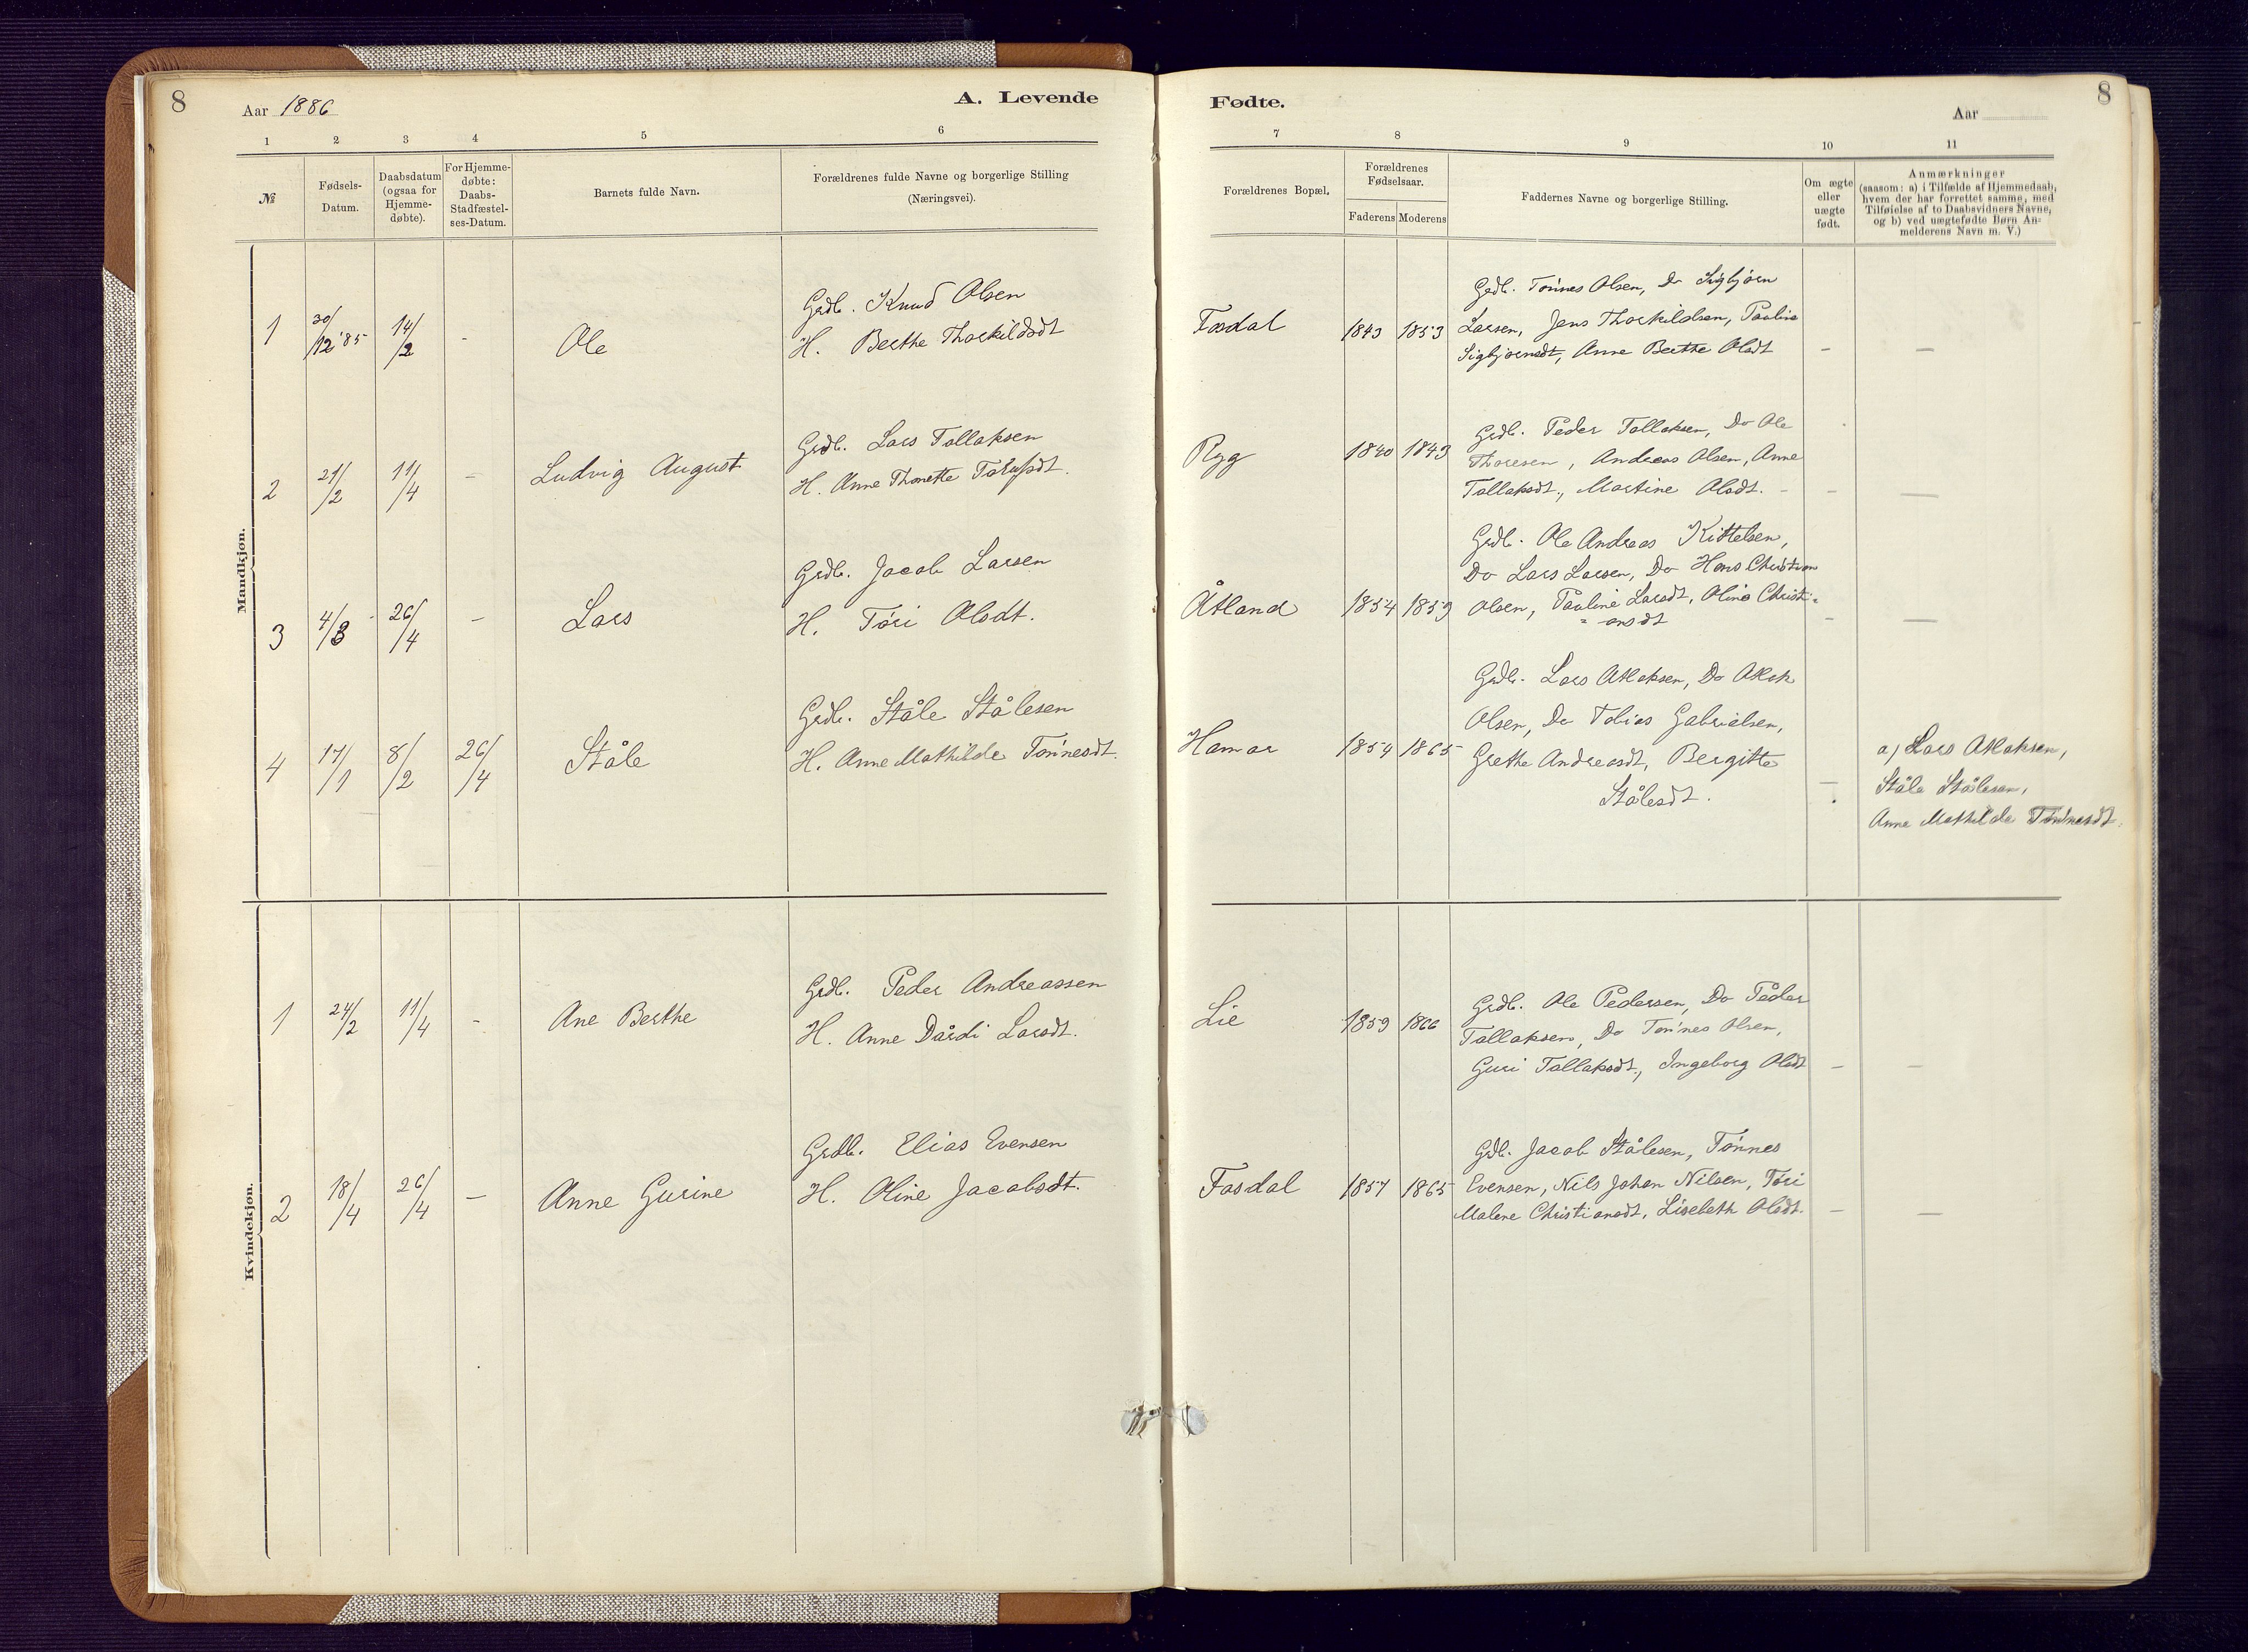 8
Aar 1886
A. Levende
1 2 3 4 5 6
№
Fødsels-
Datum.
Daabsdatum
(ogsaa for
Hjemme-
døbte).
For Hjemme-
døbte:
Daabs-
Stadfæstel-
ses-Datum.
Barnets fulde Navn.
Forældrenes fulde Navne og borgerlige Stilling
(Næringsvei).
Mandkjøn.
1 30/12 '85 14/2 - Ole
Grdb. Knud Olsen
H. Berthe Thorkildsdt
2 21/2 11/4 - Ludvig August
Grdb. Lars Tollaksen
H. Anne Thonette
3 4/3 26/4 - Lars
Grdb. Jacob Larsen
H. Tóri Olsdt.
4 17/1 8/2 26/4 Ståle
Grdb. Ståle Stålesen
H. Anne Mathilde Tónnesdt.
Kvindekjøn.
1 24/2 11/4 - Ane Berthe
Grdb. Peder Andreassen
H. Anne Dårdi Larsdt.
2 18/4 26/4 - Anne Gurine
Grdb. Elias Evensen
H. Oline Jacobsdt.
Fødte.
8
Aar
7 8 9 10 11
Forældrenes Bopæl.
Forældrenes
Fødselsaar.
Faderens Moderens
Faddernes Navne og borgerlige Stilling.
Om ægte
eller
uægte
født.
Anmærkninger
(saasom: a) i Tilfælde af Hjemmedaab,
hvem der har forrettet samme, med
Tilføielse af to Daabsvidners Navne,
og b) ved uægtefødte Børn An-
melderens Navn m. V.)
Fosdal 1843 1853
Grdb. Tónnes Olsen, Do Sigbjørn
Larsen, Jens Thorkildsen, Pauline
Sigbjørnsdt, Anne Berthe Olsdt - -
Ryg 1840 1843
Grdb. Peder Tollaksen, Do Ole
Thoresen, Andreas Olsen, Anne
Tollaksdt., Martine Olsdt. - - -
Åtland 1854 1859
Grdb. Ole Andreas Kittelsen,
Do Lars Larsen, Do Hans Christian
Olsen, Pauline Larsdt, Oline Christi=
=ansdt - -
Hamar 1854 1865
Grdb. Lars Atlaksen, Do Atlak
Olsen, Do Tobias Gabrielsen,
Grethe Andreasdt, Bergitte
Stålesdt. -
a) Lars Atlaksen,
Ståle Stålesen,
Anne Mathilde Tónnesdt.
Lie 1859 1866
Grdb. Ole Pedersen, Do Peder
Tollaksen, Do Tónnes Olsen,
Guri Tollaksdt., Ingeborg Olsdt - -
Fosdal 1857 1865
Grdb. Jacob Stålesen, Tónnes
Evensen, Nils Johan Nilsen, Tóri
Malene Christiansdt, Lisebeth Olsdt. - -